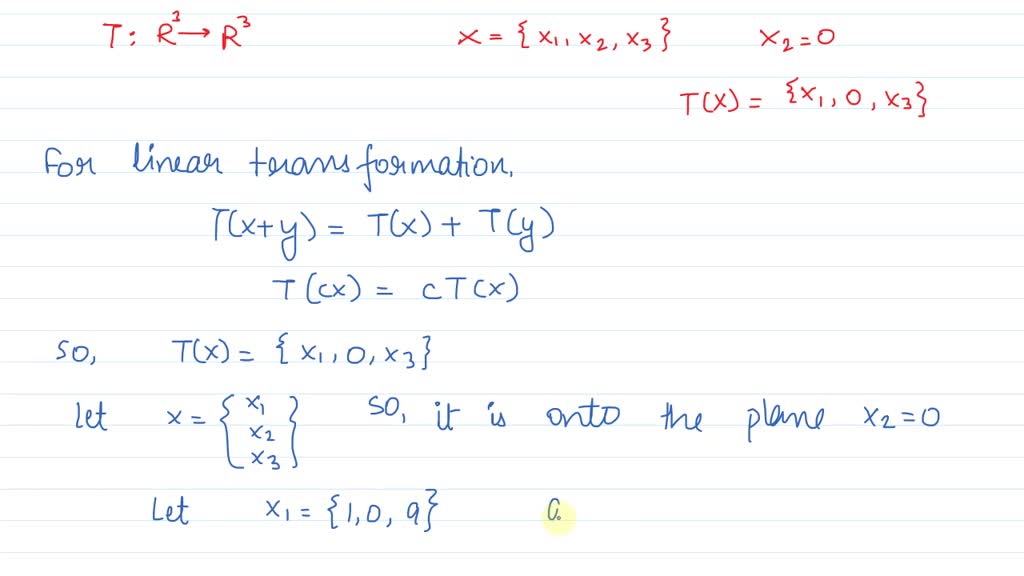 T: R³ → R³ x = {x₁, x₂, x₃} x₂ = 0
T(x) = {x₁, 0, x₃}
For linear transformation,
T(x+y) = T(x) + T(y)
T(cx) = cT(x)
so, T(x) = {x₁, 0, x₃}
let x = {x₁ x₂ x₃} so, it is onto the plane x₂ = 0
Let x₁ = {1, 0, 9}